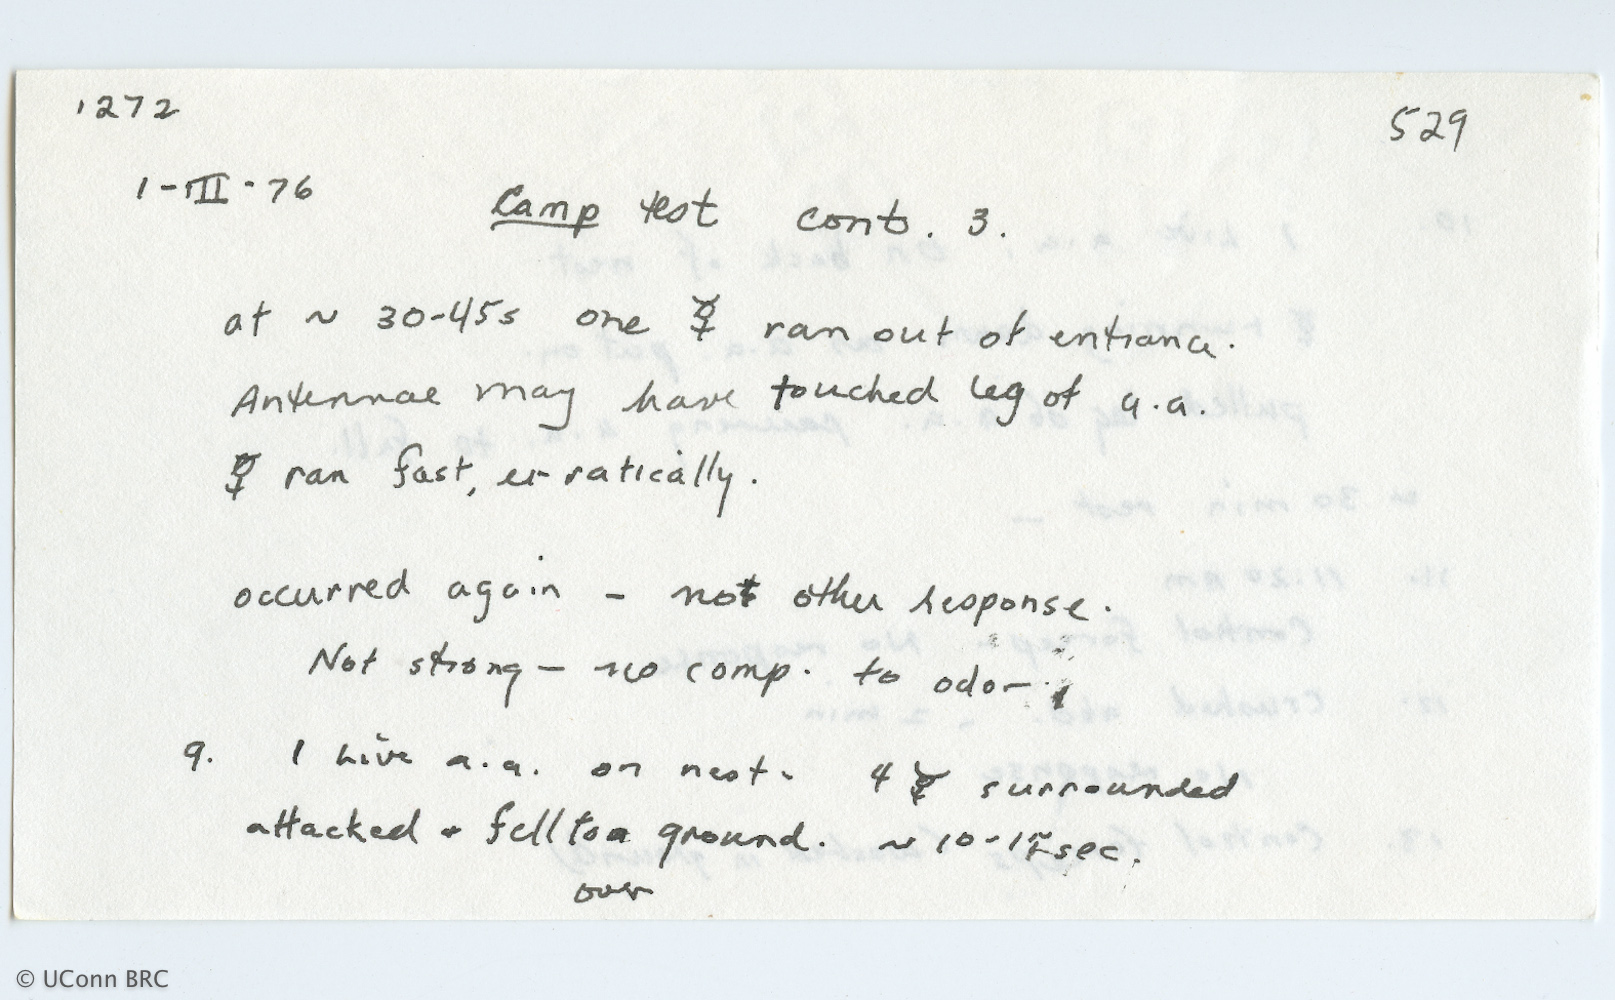 1272
529
1-III-76
Camp test cont. 3.
at ~ 30-45s one ☿ ran out of entrance.
Antennae may have touched leg of a.a.
☿ ran fast, erratically.
occurred again - not other response.
Not strong - no comp. to odor.
9. 1 live a.a. on nest. 4 ☿ surrounded
attacked + fell to ground. ~ 10-15 sec.
over
© UConn BRC